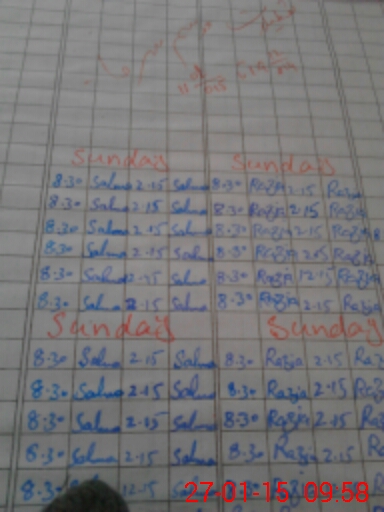 Sunday Sunday
8.30 Salma 2.15 Salma 8.30 Razia 2.15 Razia
8.30 Salma 2.15 Salma 8.30 Razia 2.15 Razia
8.30 Salma 2.15 Salma 8.30 Razia 2.15 Razia
8.30 Salma 2.15 Salma 8.30 Razia 2.15 Razia
8.30 Salma 2.15 Salma 8.30 Razia 12.15 Razia
8.30 Salma 2.15 Salma 8.30 Razia 2.15 Razia
Sunday Sunday
8.30 Salma 2.15 Salma 8.30 Razia 2.15 Raz
8.30 Salma 2.15 Salma 8.30 Razia 2.15 Raz
8.30 Salma 2.15 Salma 8.30 Razia 2.15 Ra
8.30 Salma 2.15 Salma 8.30 Razia 2.15 R
8.30 12.15
27-01-15 09:58